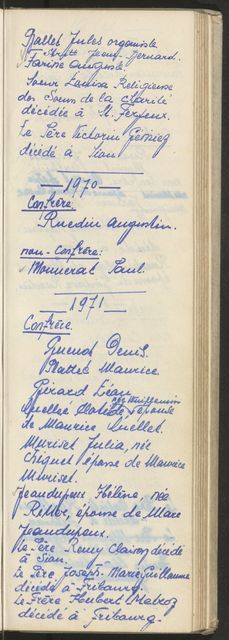 Ballet Jules organiste
Jean-Bernard.
Farine Auguste.
Soeur Louisa Religieuse
des Soeurs de la charité
décédée à St. Ferjeux.
Le Père Victorin
décédé à Sion
— 1970 —
Confrère:
Ruedin Augustin.
non-Confrère:
Monnerat Paul.
— 1971 —
Confrère.
Guenot Denis.
Maurice
Girard Léon
née Vuillemin
Quellet épouse
de Maurice Quellet.
Muriset Julia, née
épouse de Maurice
Muriset.
Jeandupeux Hélène, née
épouse de Marc
Jeandupeux.
Le Père Remy décédé
à Sion.
Le Père Joseph-Marie Guillaume
décédé à Fribourg.
Le Frère Herbert
décédé à Fribourg.